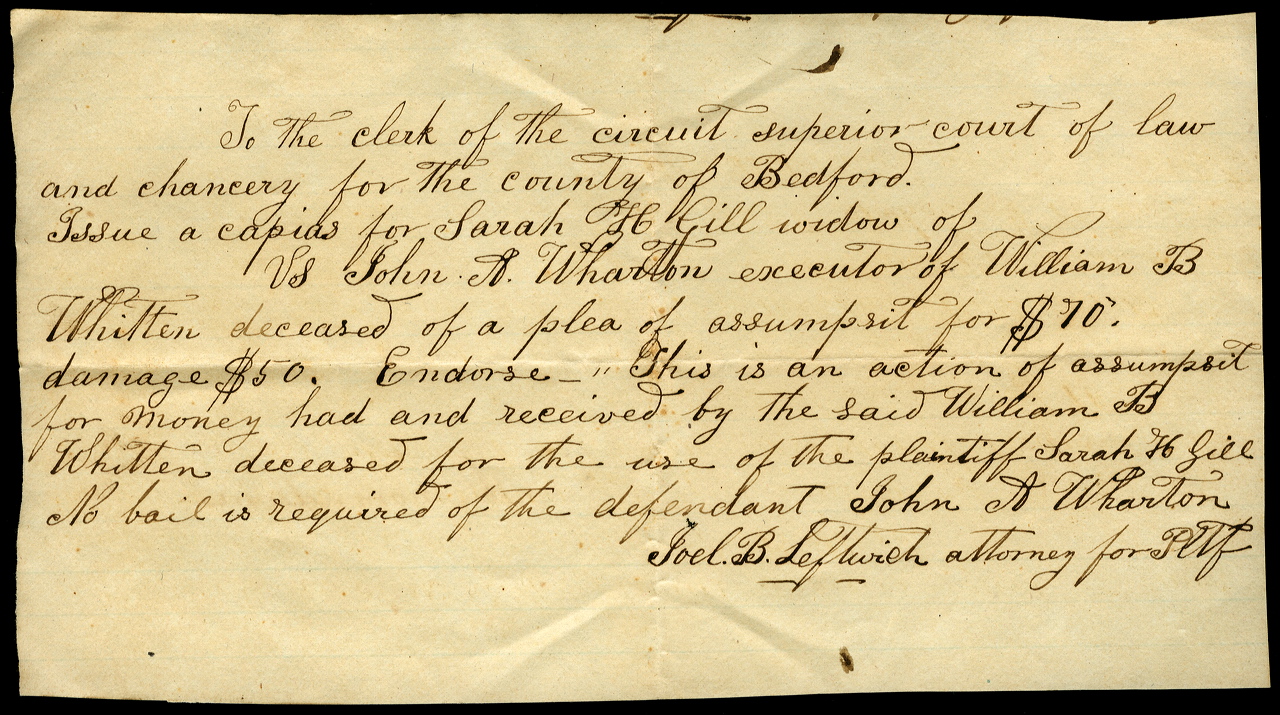 To the clerk of the circuit superior court of law
and chancery for the county of Bedford.
Issue a capias for Sarah H Gill widow of
Vs John A. Wharton executor of William B
Whitten deceased of a plea of assumpsit for $70.
damage $50. Endorse — " This is an action of assumpsit
for money had and received by the said William B
Whitten deceased for the use of the plaintiff Sarah H Gill
No bail is required of the defendant John A Wharton
Joel. B. Leftwich attorney for Pltf